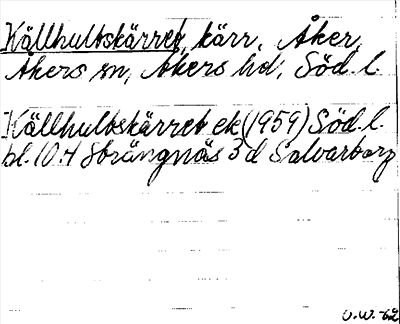 Källhultskärret, kärr, Åker,
Åkers sn, Åkers hd, Söd. l.
Källhultskärret ek (1959) Söd. l.
bl. 10.4 Strängnäs 3 d Salvarbarg
U.W. -62